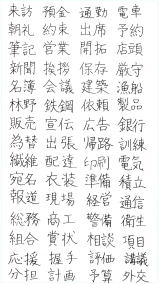 来訪 預金 通勤 電車
朝礼 約束 出席 予約
筆記 営業 開拓 店頭
新聞 挨拶 保存 厳守
名簿 会議 建築 漁船
林野 鉄鋼 依頼 製品
販売 宣伝 広告 銀行
為替 出張 帰路 訓練
繊維 配達 印刷 電気
宛名 衣装 準備 積立
報道 現場 経営 通信
総務 商工 警備 衛生
組合 賞状 相談 項目
応援 握手 評価 講義
分担 計画 予算 外交